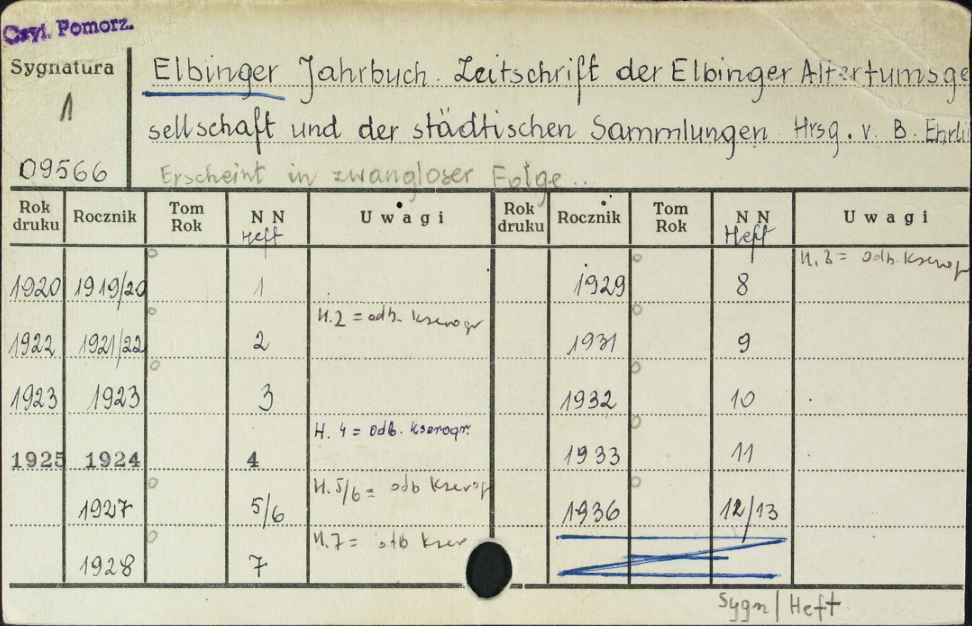 Czyt. Pomorz.
Sygnatura
1
09566
Elbinger Jahrbuch. Zeitschrift der Elbinger Altertumsge
sellschaft und der städtischen Sammlungen. Hrsg. v. B. Ehrli
Erscheint in zwangloser Folge..
Rok druku Rocznik Tom Rok NN Heft Uwagi Rok druku Rocznik Tom Rok NN Heft Uwagi
1920 1919/20 1 1929 8 H. 8 = odb. kserogr
1922 1921/22 2 H. 2 = odb. kserogr 1931 9
1923 1923 3 1932 10
1925 1924 4 H. 4 = odb. kserogr. 1933 11
1927 5/6 H. 5/6 = odb kserogr 1936 12/13
1928 7 H. 7 = odb kser
Sygn/Heft